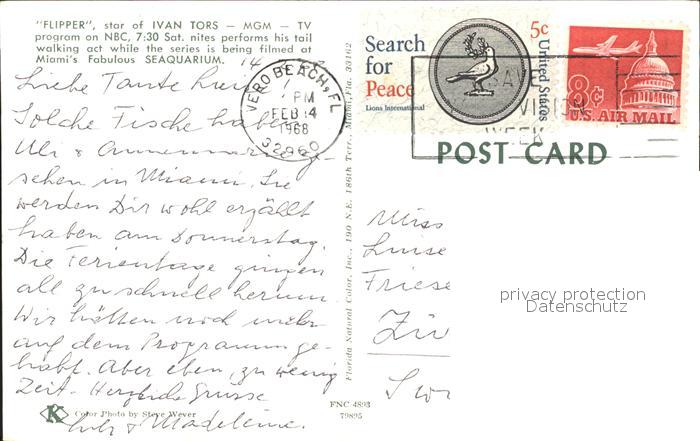 "FLIPPER", star of IVAN TORS — MGM — TV
program on NBC, 7:30 Sat. nites performs his tail
walking act while the series is being filmed at
Miami's Fabulous SEAQUARIUM.
14
Liebe Tante
Solche Fische haben
Ueli & Annemarie ge-
sehen in Miami. Sie
werden Dir wohl erzählt
haben am Donnerstag.
Die Ferientage gingen
all zu schnell herum.
Wir hätten noch mehr
auf dem Programm ge-
habt. Aber eben, zu wenig
Zeit. Herzliche Grüsse
& Madeleine.
K Color Photo by Steve Wever
Florida Natural Color, Inc., 190 N.E. 186th Terr., Miami, Fla. 33162
FNC-4893
79895
VERO BEACH, FL
PM
FEB 14
1968
32960
Search
for
Peace
Lions International
5c
United States
8c
U.S. AIR MAIL
VISION
WEEK
POST CARD
Miss
Luise
Friese
Zür
Swi
privacy protection
Datenschutz